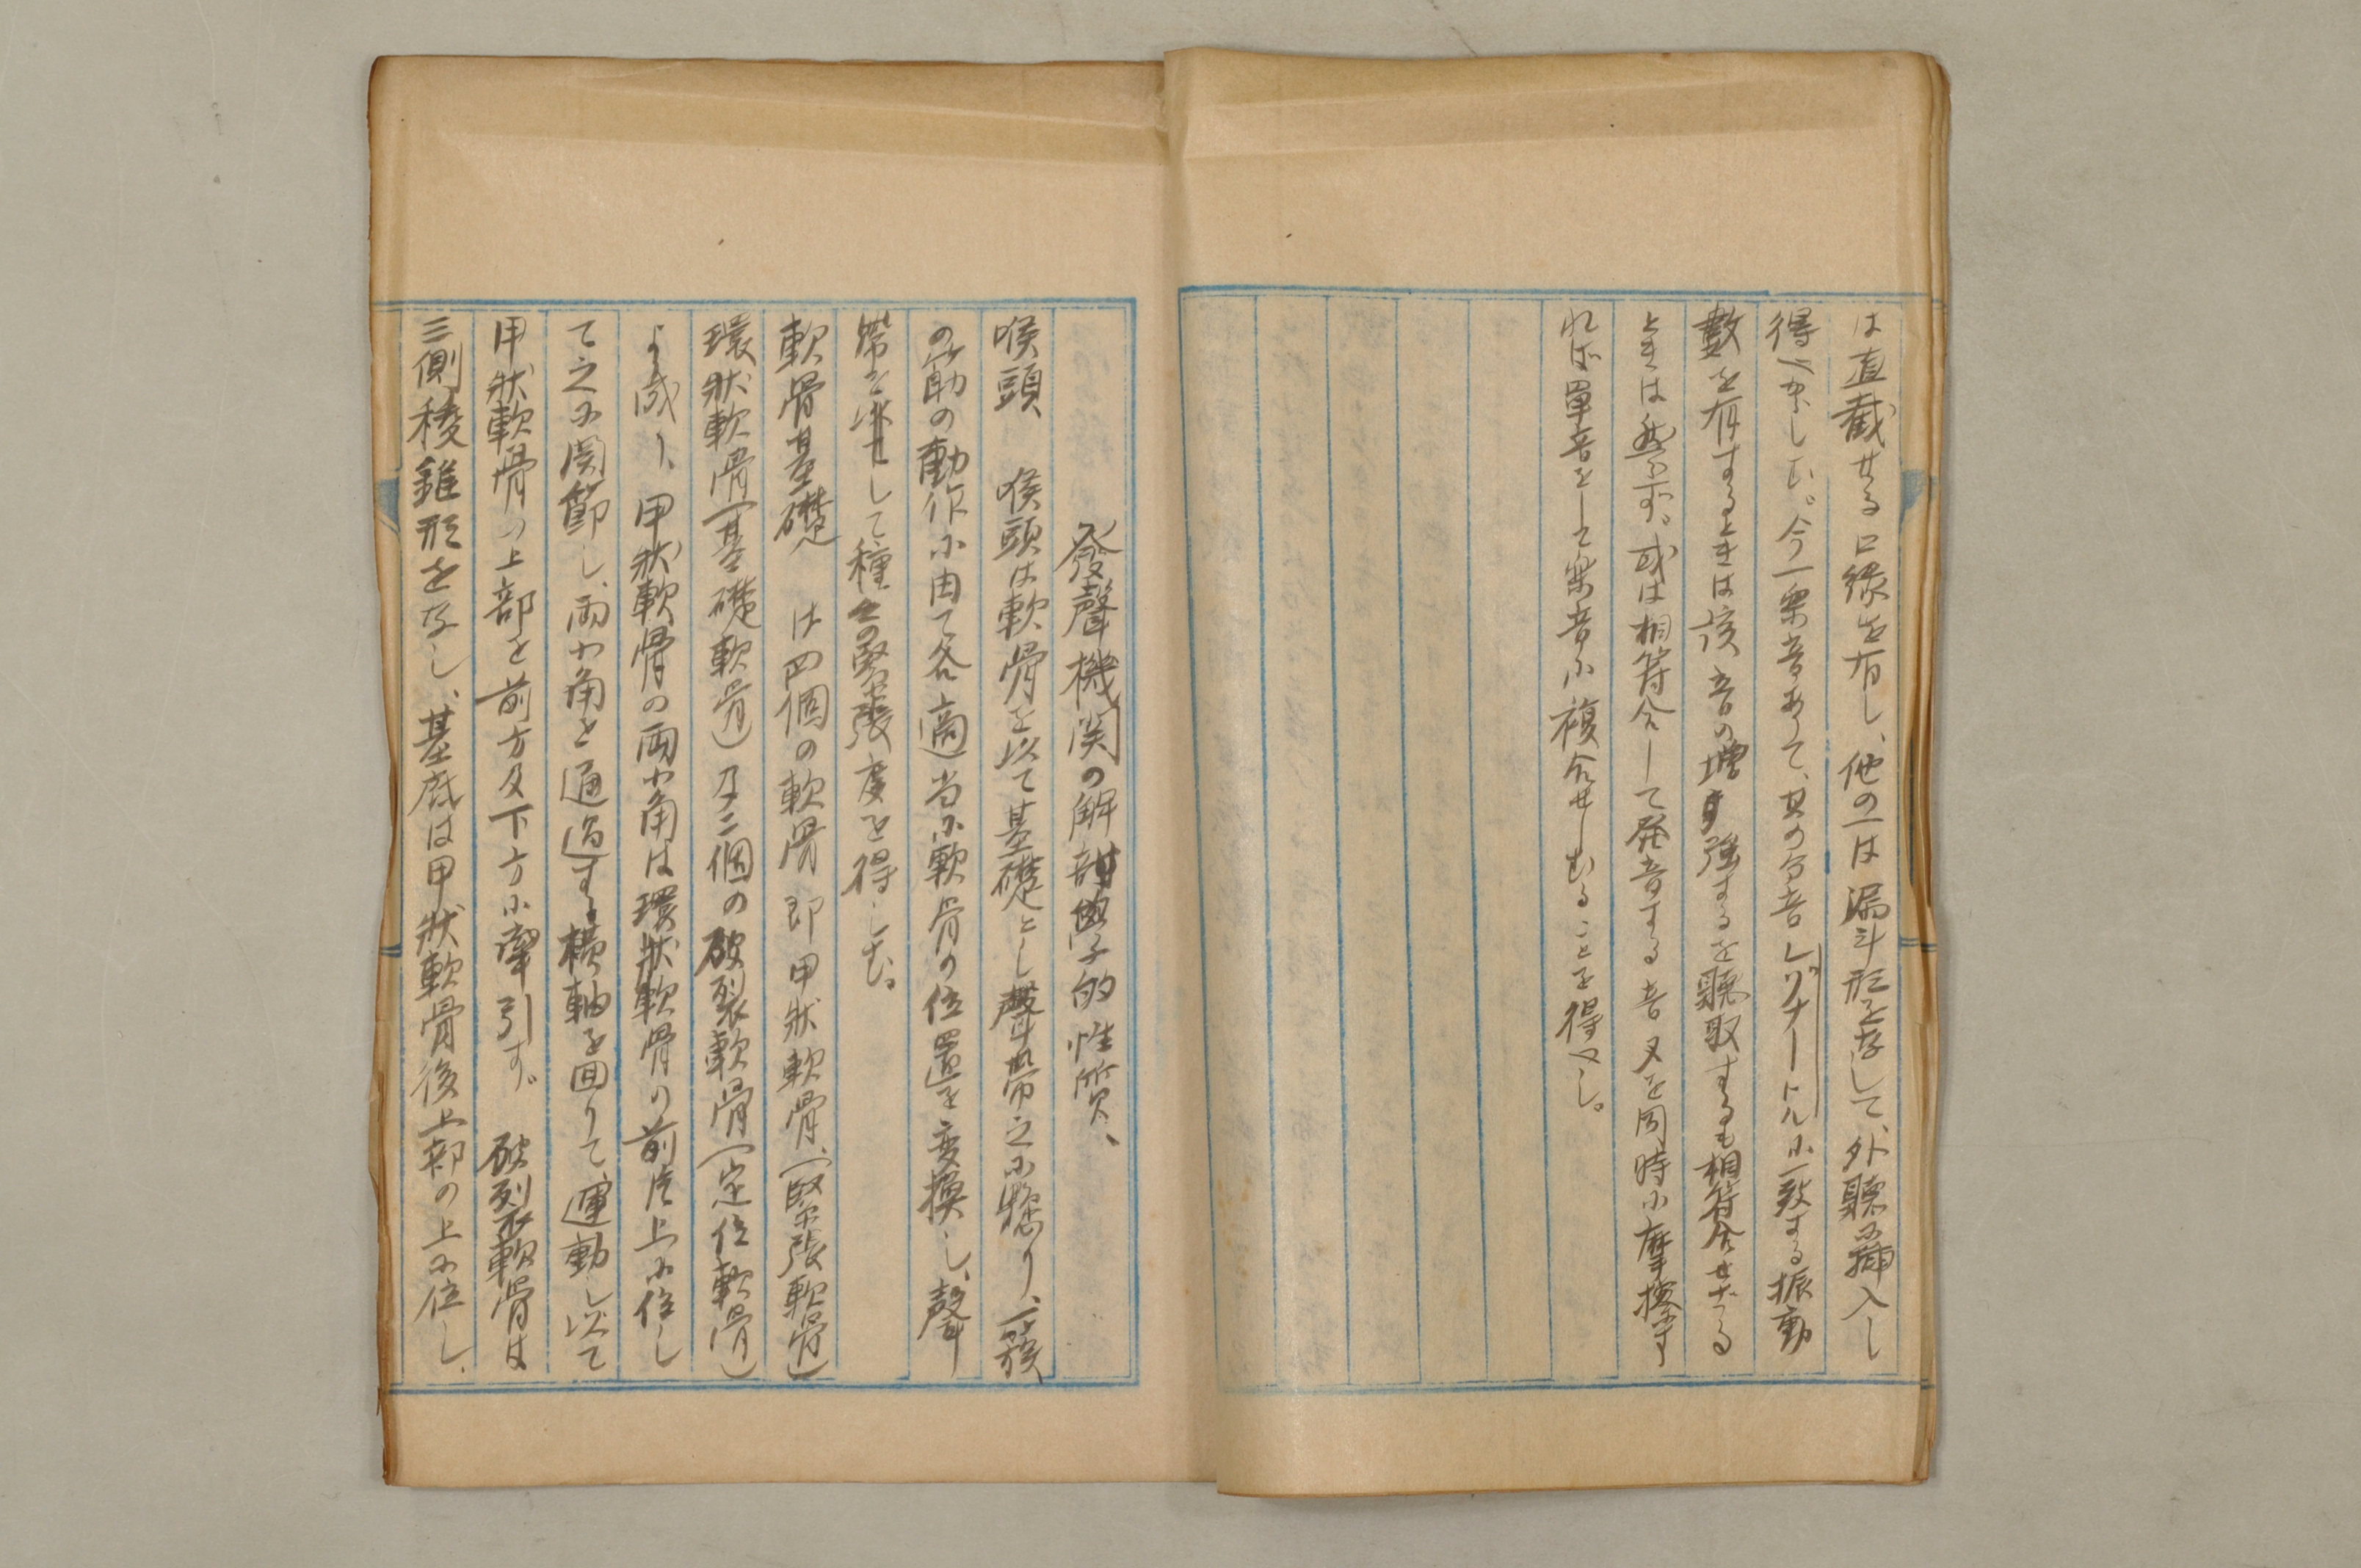 は直截せる口縁を有し、他の一は漏斗形をなして、外聴に挿入し
得べからしむ。今一楽音ありて、其の分音レゾナートルに一致する振動
数を有するときは該音の増強するを聴取するも相符合せざる
ときは然らず。或は相符合して発音する音叉を同時に摩擦す
れば單音をして楽音に複合せしむることを得べし。
發聲機関の解剖學的性質、
喉頭、喉頭は軟骨を以て基礎とし聲帯之に懸り、一簇
の筋の動作に由て各適当に軟骨の位置を変換し、聲
帯をして種々の緊張度を得しむ。
軟骨基礎 は四個の軟骨即甲狀軟骨、(緊張軟骨)
環狀軟骨(基礎軟骨)及二個の破裂軟骨(定位軟骨)
より成り、甲狀軟骨の両小角は環狀軟骨の前片上に位し
て之に関節し、両小角を通過する横軸を回りて、運動し以て
甲狀軟骨の上部を前方及下方に牽引す。 破裂軟骨は
三側稜錐形をなし、基底は甲狀軟骨後上部の上に位し、